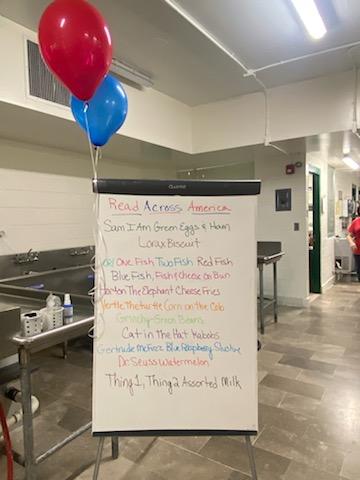 Quartet
Read Across America
Sam I Am Green Eggs & Ham
Lorax Biscuit
One Fish Two Fish, Red Fish
Blue Fish, Fish & cheese on Bun
Horton The Elephant Cheese Fries
Yertle The turtle Corn on the Cob
Grinchy-Green Beans
Cat in The Hat Kabobs
Gertrude McFuzz Blue Raspberry Slushie
Dr. Seuss Watermelon
Thing 1, Thing 2 Assorted Milk